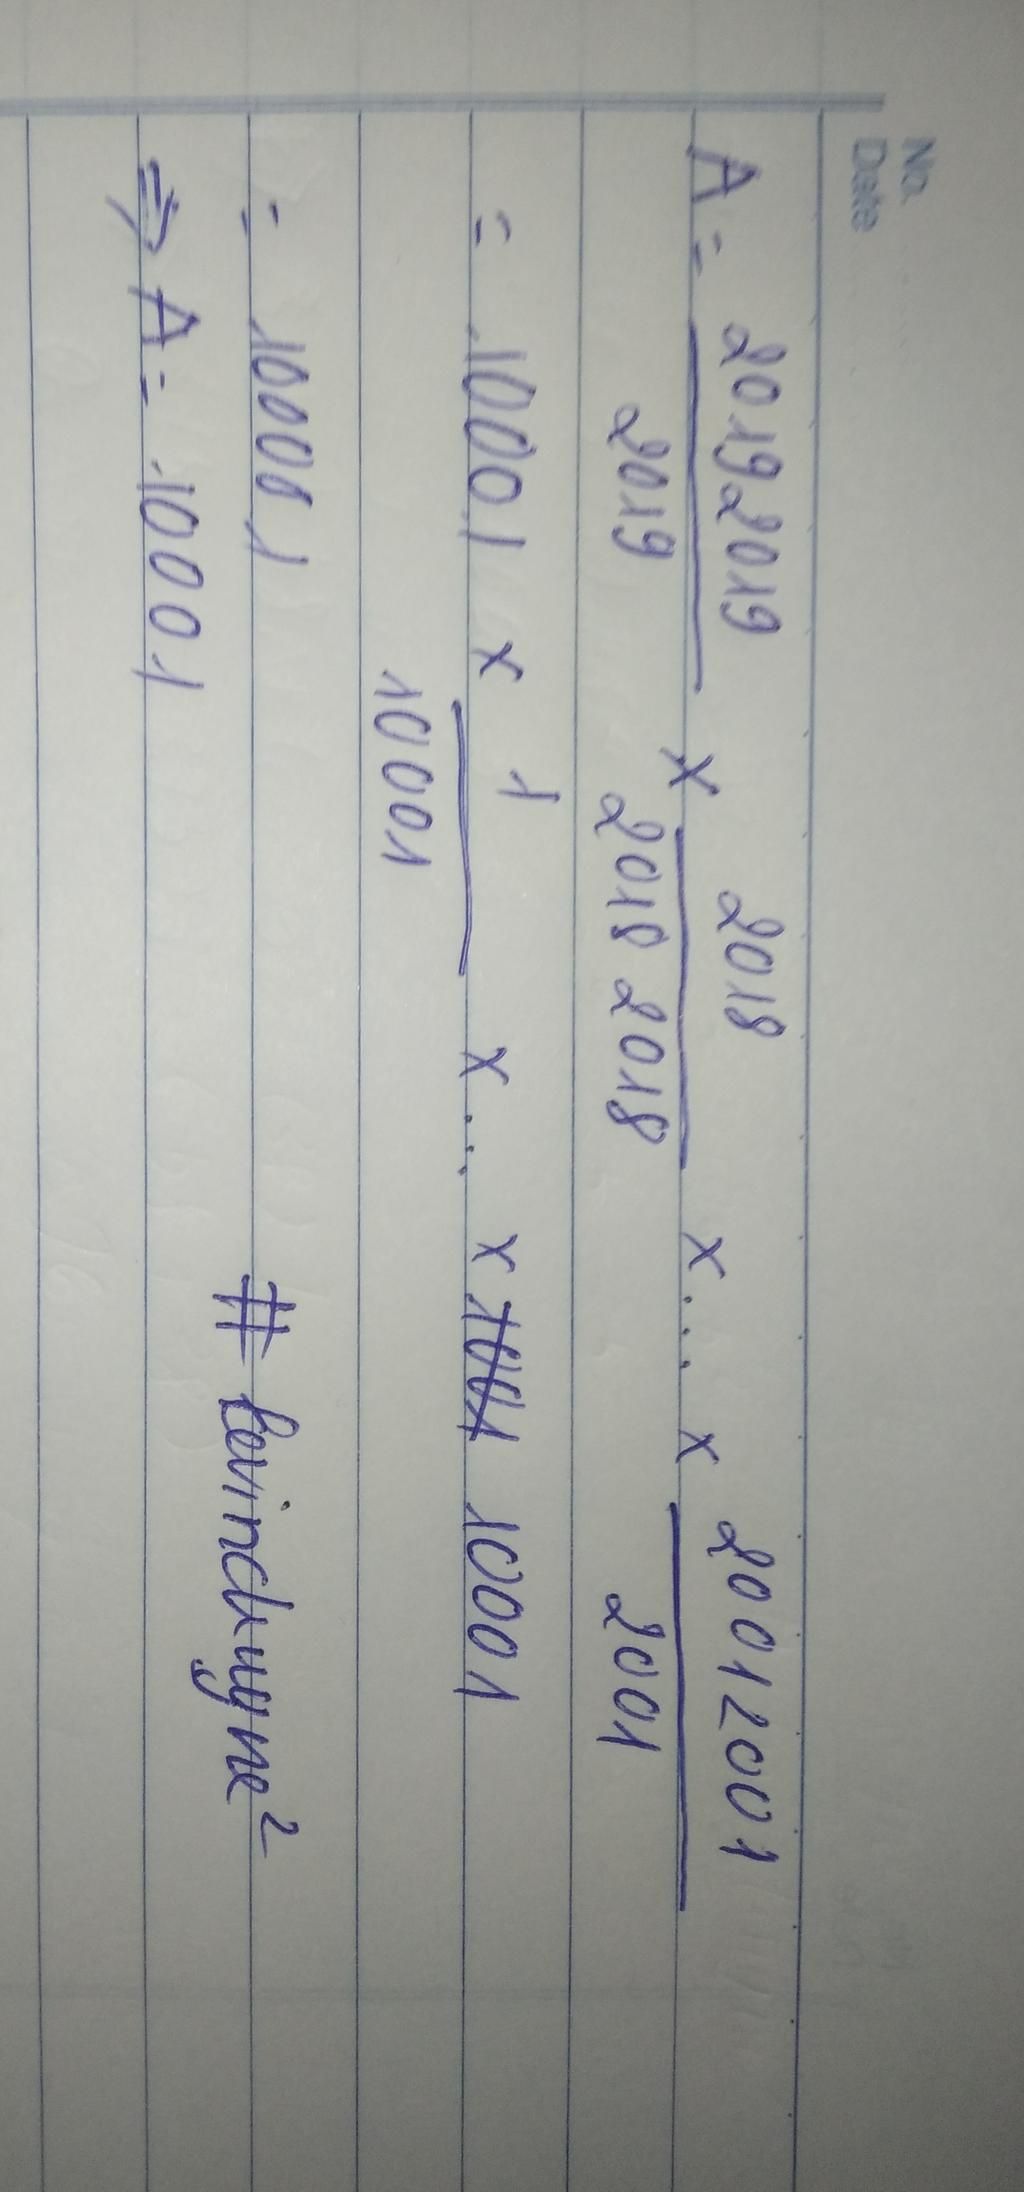 No.
Date
A = 20192019/2019 x 2018/20182018 x ... x 20012001/2001
= 10001 x 1/10001 x ... x 1001 10001
= 10001
=> A = 10001